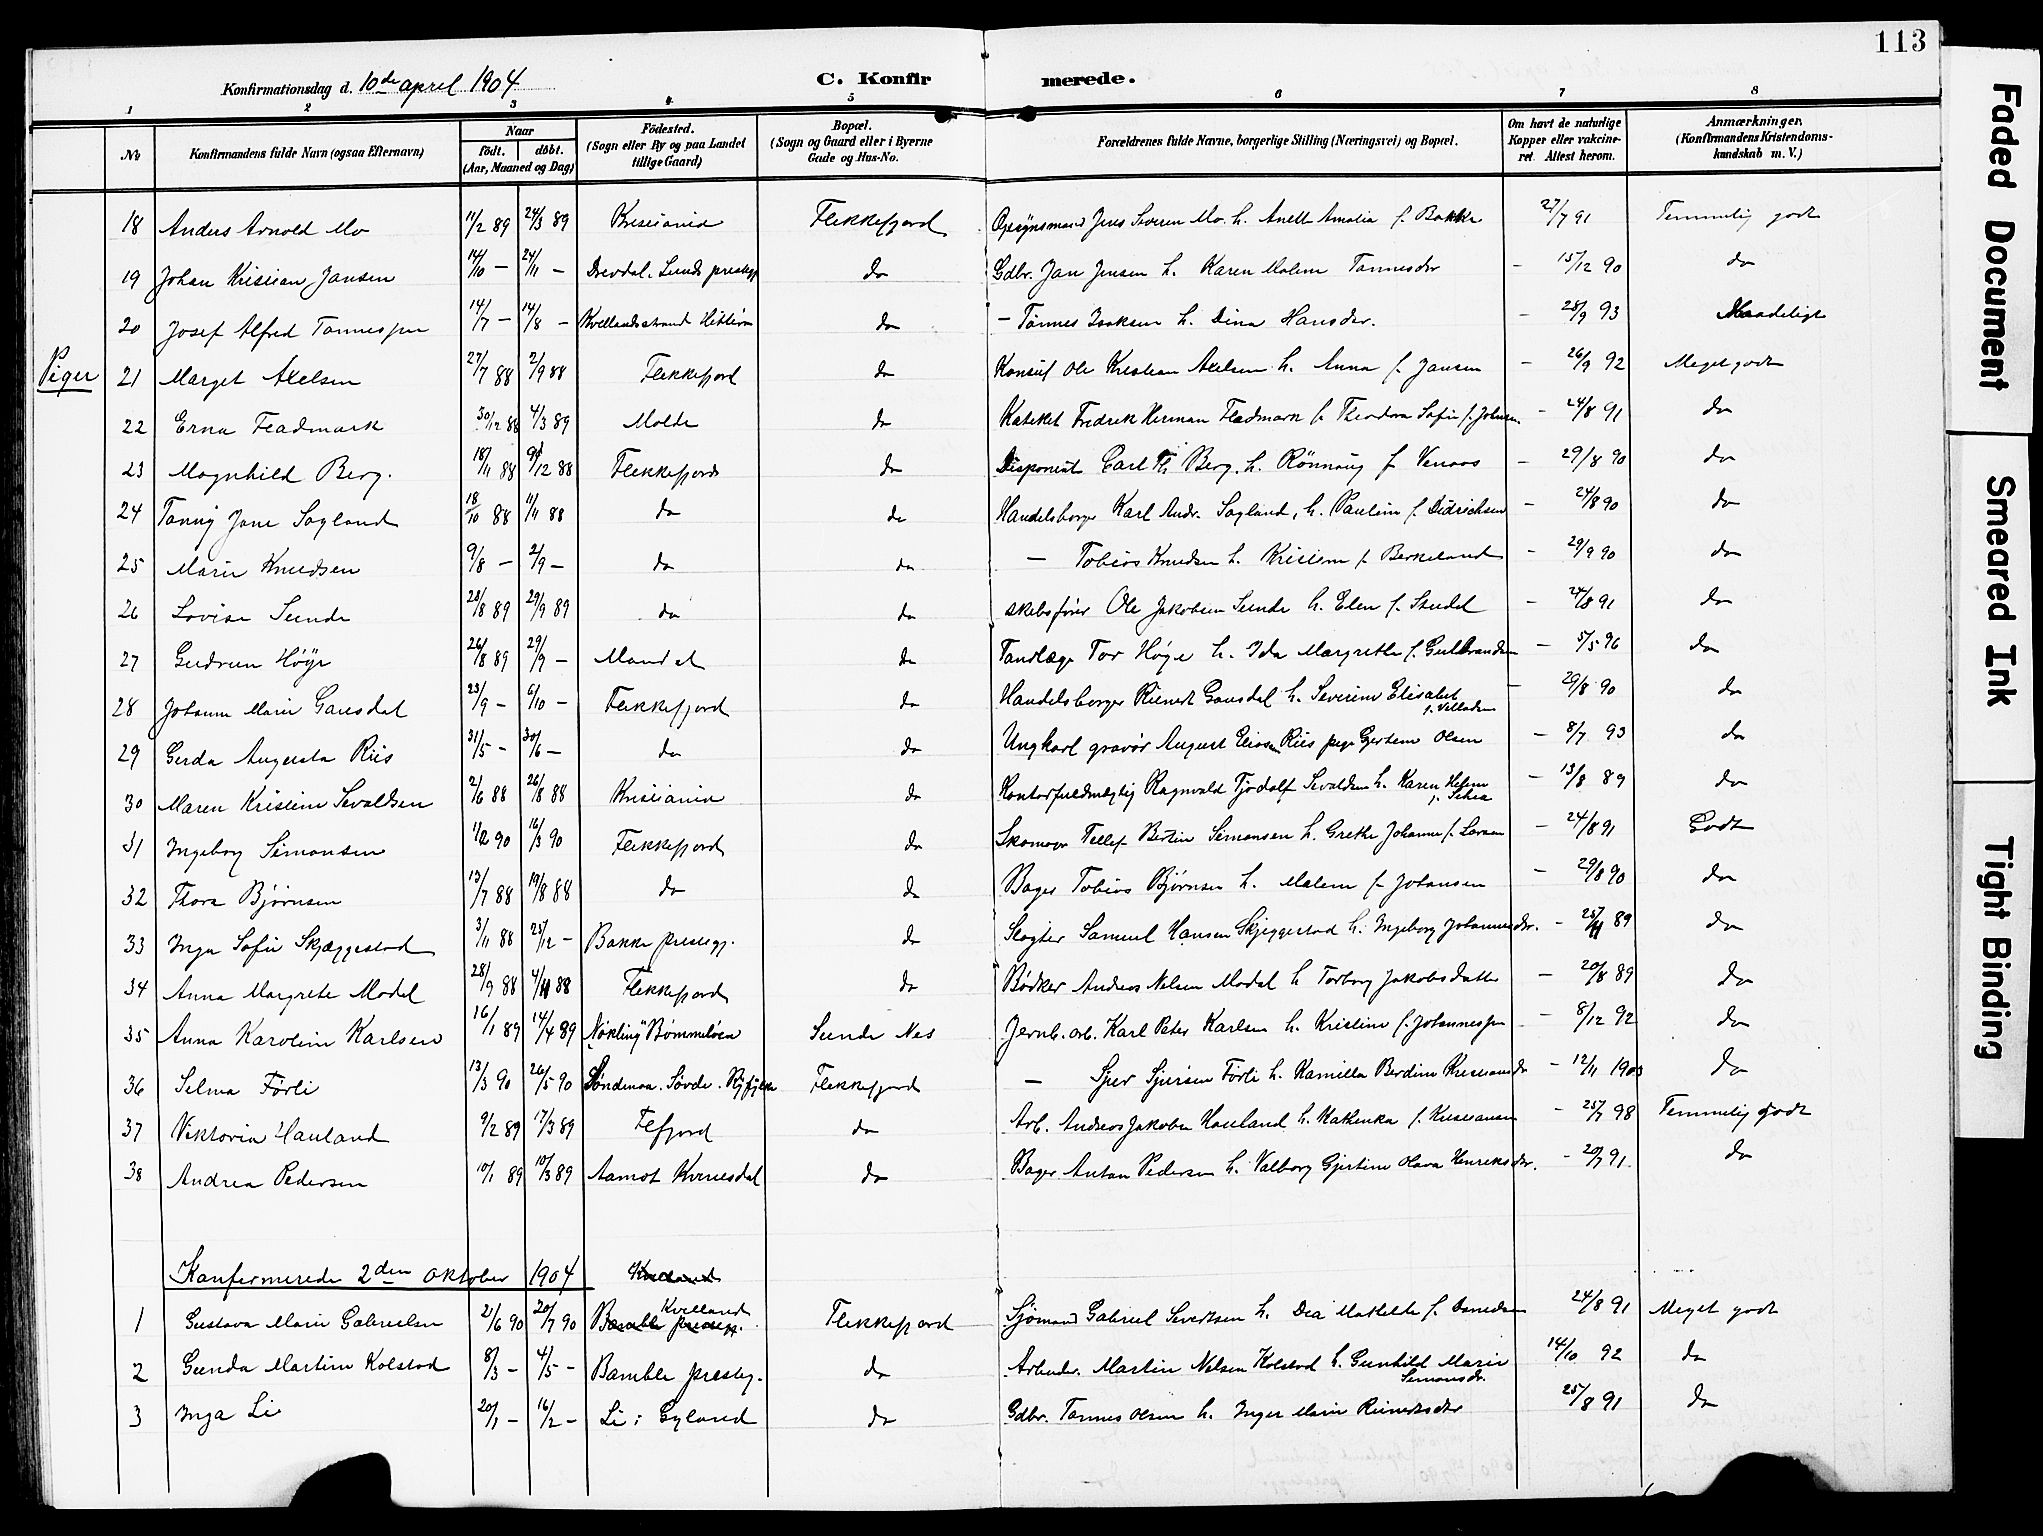 113
Konfirmationsdag d. 10de april 1904
C. Konfirmerede.
1 2 3 4 5 6 7 8
No
Konfirmandens fulde Navn (ogsaa Efternavn)
Naar
födt. döbt.
(Aar, Maaned og Dag)
Födested.
(Sogn eller By og paa Landet
tillige Gaard)
Bopæl.
(Sogn og Gaard eller i Byerne
Gade og Hus-No.
Forældrenes fulde Navne, borgerlige Stilling (Næringsvei) og Bopæl.
Om havt de naturlige
Kopper eller vakcine-
ret. Attest herom.
Anmærkninger.
(Konfirmandens Kristendoms-
kundskab m. V.)
18 Anders Arnold Mo 11/2 89 24/3 89 Kristiania Flekkefjord Opsynsmand Jens Severin Mo. h. Anett Amalia f. Bakke 27/7 91 Temmelig godt
19 Johan Kristian Jansen 14/10 — 24/11 — Drevdal. Lunds prestegj do Gdbr. Jan Jensen h. Karen Malene Tønnesdtr — 15/12 90 do
20 Josef Alfred Tønnessen 14/7 — 14/8 — Kvellandstrand Hitterø do — Tönnes Isaksen h. Dina Hansdtr. — 28/9 93 Maadeligt
Piger
21 Marget Axelsen 27/7 88 2/9 88 Flekkefjord do Konsul Ole Kristian Axelsen h. Anna f. Jansen — 26/9 92 Meget godt
22 Erna Fladmark 30/12 88 4/3 89 Molde do Kateket Fredrik Herman Fladmark h. Theodora Sofie f. Johnsen — 24/8 91 do
23 Magnhild Berg. 18/11 88 9/12 88 Flekkefjord do Disponent Carl Th. Berg. h. Rönnaug f. Venaas — 29/8 90 do
24 Fanny Jane Sogland 18/10 88 11/11 88 do do Handelsborger Karl Andr. Sogland, h. Pauline f. Didrichsen — 24/8 90 do
25 Marie Knudsen 9/8 — 2/9 — do do — Tobias Knudsen h. Kristine f. Berkeland — 29/9 90 do
26 Lovise Sunde 28/8 89 29/9 89 do do skibsfører Ole Jakobsen Sunde h. Elen f. — 24/8 91 do
27 Gudrun Höye 26/8 89 29/9 — Mandal do Tandlæge Tor Höye h. Ida Margrethe f. Gulbrandsen — 5/5 96 do
28 Johanne Marie Gausdal 23/9 — 6/10 — Flekkefjord do Handelsborger Reinert Gausdal h. Severine Elisabet — 29/8 90 do
f. Villadsen
29 Gerda Augusta Riis 31/5 — 30/6 — do do Ungkarl gravør August Eliasen Riis pige Gjertine Olsen — 8/7 93 do
30 Maren Kristine Sevaldsen 2/6 88 26/8 88 Kristiania do Kontorfuldmægtig Ragnvald Tjodolf Sevaldsen h. Karen Helene — 13/8 89 do
31 Ingeborg Simonsen 1/2 90 16/3 90 Flekkefjord do Skomager Tellef Bertin Simonsen h. Grethe Johanne f. Larsen — 24/8 91 Godt
32 Thora Bjørnsen 13/7 88 19/8 88 do do Bager Tobias Bjørnsen h. Malene f. Johansen — 29/8 90 do
33 Inga Sofie Skjæggestad 3/11 88 25/12 — Bakke prestegj. do Slagter Samuel Hansen Skjeggestad h. Ingeborg Johannesdtr. — 25/11 89 do
34 Anna Margrete Modal 28/9 88 4/11 88 Flekkefjord do Bødker Andreas Nelsen Modal h Torborg Jakobsdatter — 20/8 89 do
35 Anna Karoline Karlsen 16/1 89 14/4 89 "Nøkling" Bømmeløen Sunde Nes Jernb. arb. Karl Peter Karlsen h. Kristine f. Johannessen — 8/12 92 do
36 Selma Förli 13/3 90 26/5 90 Söndenaa. Sövde. Ryfylke Flekkefjord — Sjur Sjursen Förli h. Kamilla Berdine Kristiansdr — 12/11 1903 do
37 Viktoria Hauland 9/2 89 17/3 89 Flfjord do Arb. Andreas Jakobsen Hauland h. Kathinka f. Kristiansen — 25/7 98 Temmelig godt
38 Andrea Pedersen 10/1 89 10/3 89 Aamot Kvinesdal do Bager Anton Pedersen h. Valborg Gjertine Olava Henriksdtr. — 20/7 91. do
Konfermerede 2den oktober 1904
1 Gustava Marie Gabrielsen 21/6 90 20/7 90 Kvelland Flekkefjord Sjømand Gabriel Severtsen h. Dea Mathilde f. Danielsen 24/8 91 Meget godt
Bamble prestegj.
2 Gunda Martine Kolstad 8/3 — 4/5 — Bamble prestegj. do Arbeider. Martin Nelsen Kolstad h. Gunhild Marie 14/10 92 do
Simonsdr.
3 Inga Li 20/1 — 16/2 — Li i Gyland do Gdbr. Tønnes Olsen h. Inger Marie Reinertsdtr 25/8 91 do
Faded Document
Smeared Ink
Tight Binding